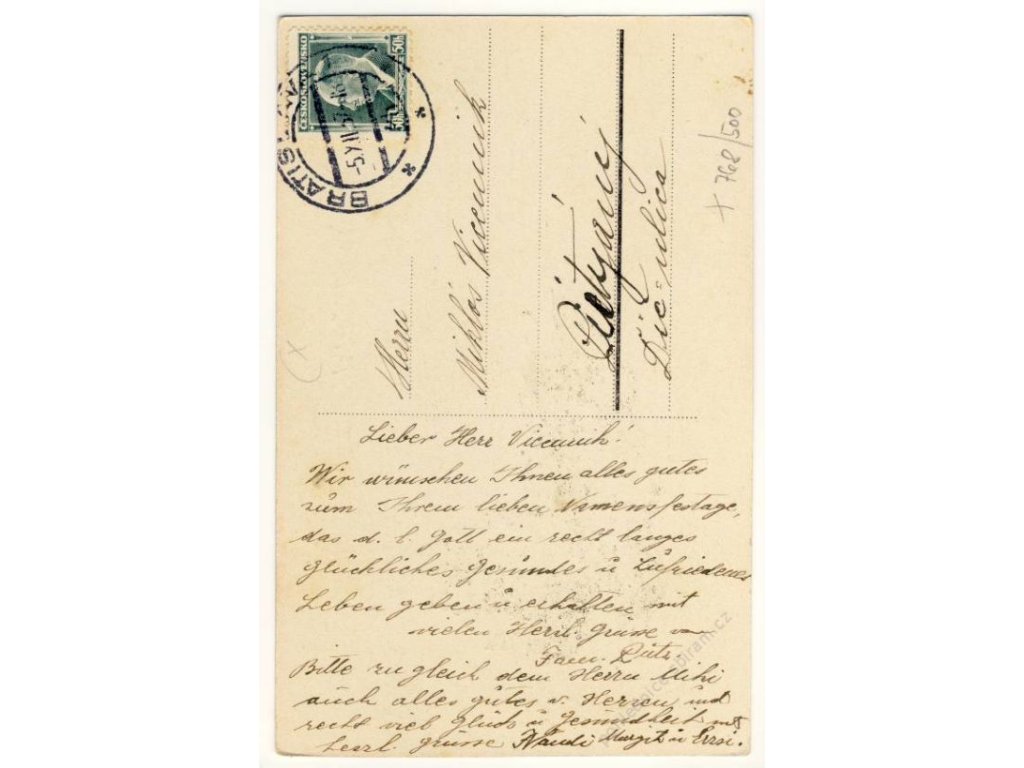 ČESKOSLOVENSKO
50h 50h
BRATISLAVA
5.XII.
Herrn
Miklós Vicennik
Pieštyánÿ
Dic-ulica
+ 768/500
Lieber Herr Vicennik!
Wir wünschen Ihnen alles gutes
zum Ihrem lieben Namensfestage,
das d. l. Gott ein recht langes
glückliches Gesundes u Zufriedenes
Leben geben u erhalten mit
vielen Herzl. Grüsse v
Fam.
Bitte zu gleich dem Herrn Mihi
auch alles gutes v. Herzen und
recht viel Glück u Gesundheit mit
herzl. Grüsse Nándi Margit u Erzsi.